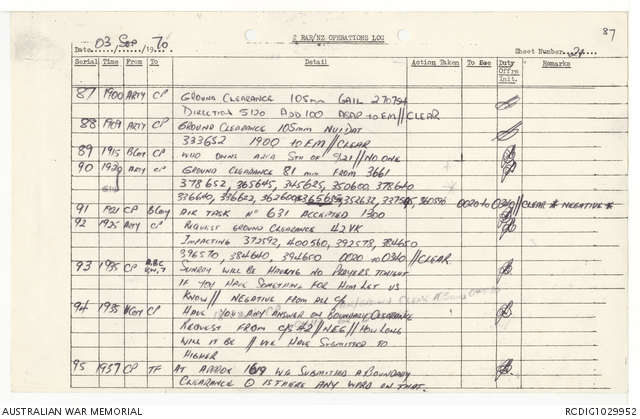 87
2 RAR/NZ OPERATIONS LOG
Date 03/Sep/1970
Sheet Number 24
Serial Time From To Detail Action Taken To See Duty Offrs Init. Remarks
87 1900 ARTY CP GROUND CLEARANCE 105mm GAIL 270754
DIRECTION 5120 ADD 100 ASAP TO FM//CLEAR
88 1909 ARTY CP GROUND CLEARANCE 105MM NUI DAT
333652 1900 TO FM//CLEAR
89 1915 BCoy CP WHO OWNS AREA 5TH OF 921//NO ONE
90 1920 ARTY CP GROUND CLEARANCE 81 MM FROM 3661
378652, 365645, 345625, 350600, 378640
336640, 339622, 362600, 352632, 360596 0020 to 0340//CLEAR * NEGATIVE *
91 1921 CP BCoy AIR TASK No 631 ACCEPTED 1900
92 1925 ARTY CP REQUEST GROUND CLEARANCE 42 YK
IMPACTING 372592, 400560, 392578, 384650
396570, 384640, 394600 0020 TO 0340//CLEAR
93 1935 CP A,B,C V,W,7 SUNRAY WILL BE HAVING NO PRAYERS TONIGHT
IF YOU HAVE SOMETHING FOR HIM LET US
KNOW// NEGATIVE FROM ALL C/S
94 1935 CP HAVE YOU ANY ANSWER ON BOUNDARY CLEARANCE
REQUEST FROM C/S 42//NEG//HOW LONG
WILL IT BE // WE HAVE SUBMITTED TO
HIGHER
95 1957 CP TF AT APPROX 1619 WE SUBMITTED A BOUNDARY
CLEARANCE IS THERE ANY WORD ON THAT.
AUSTRALIAN WAR MEMORIAL
RCDIG1029952